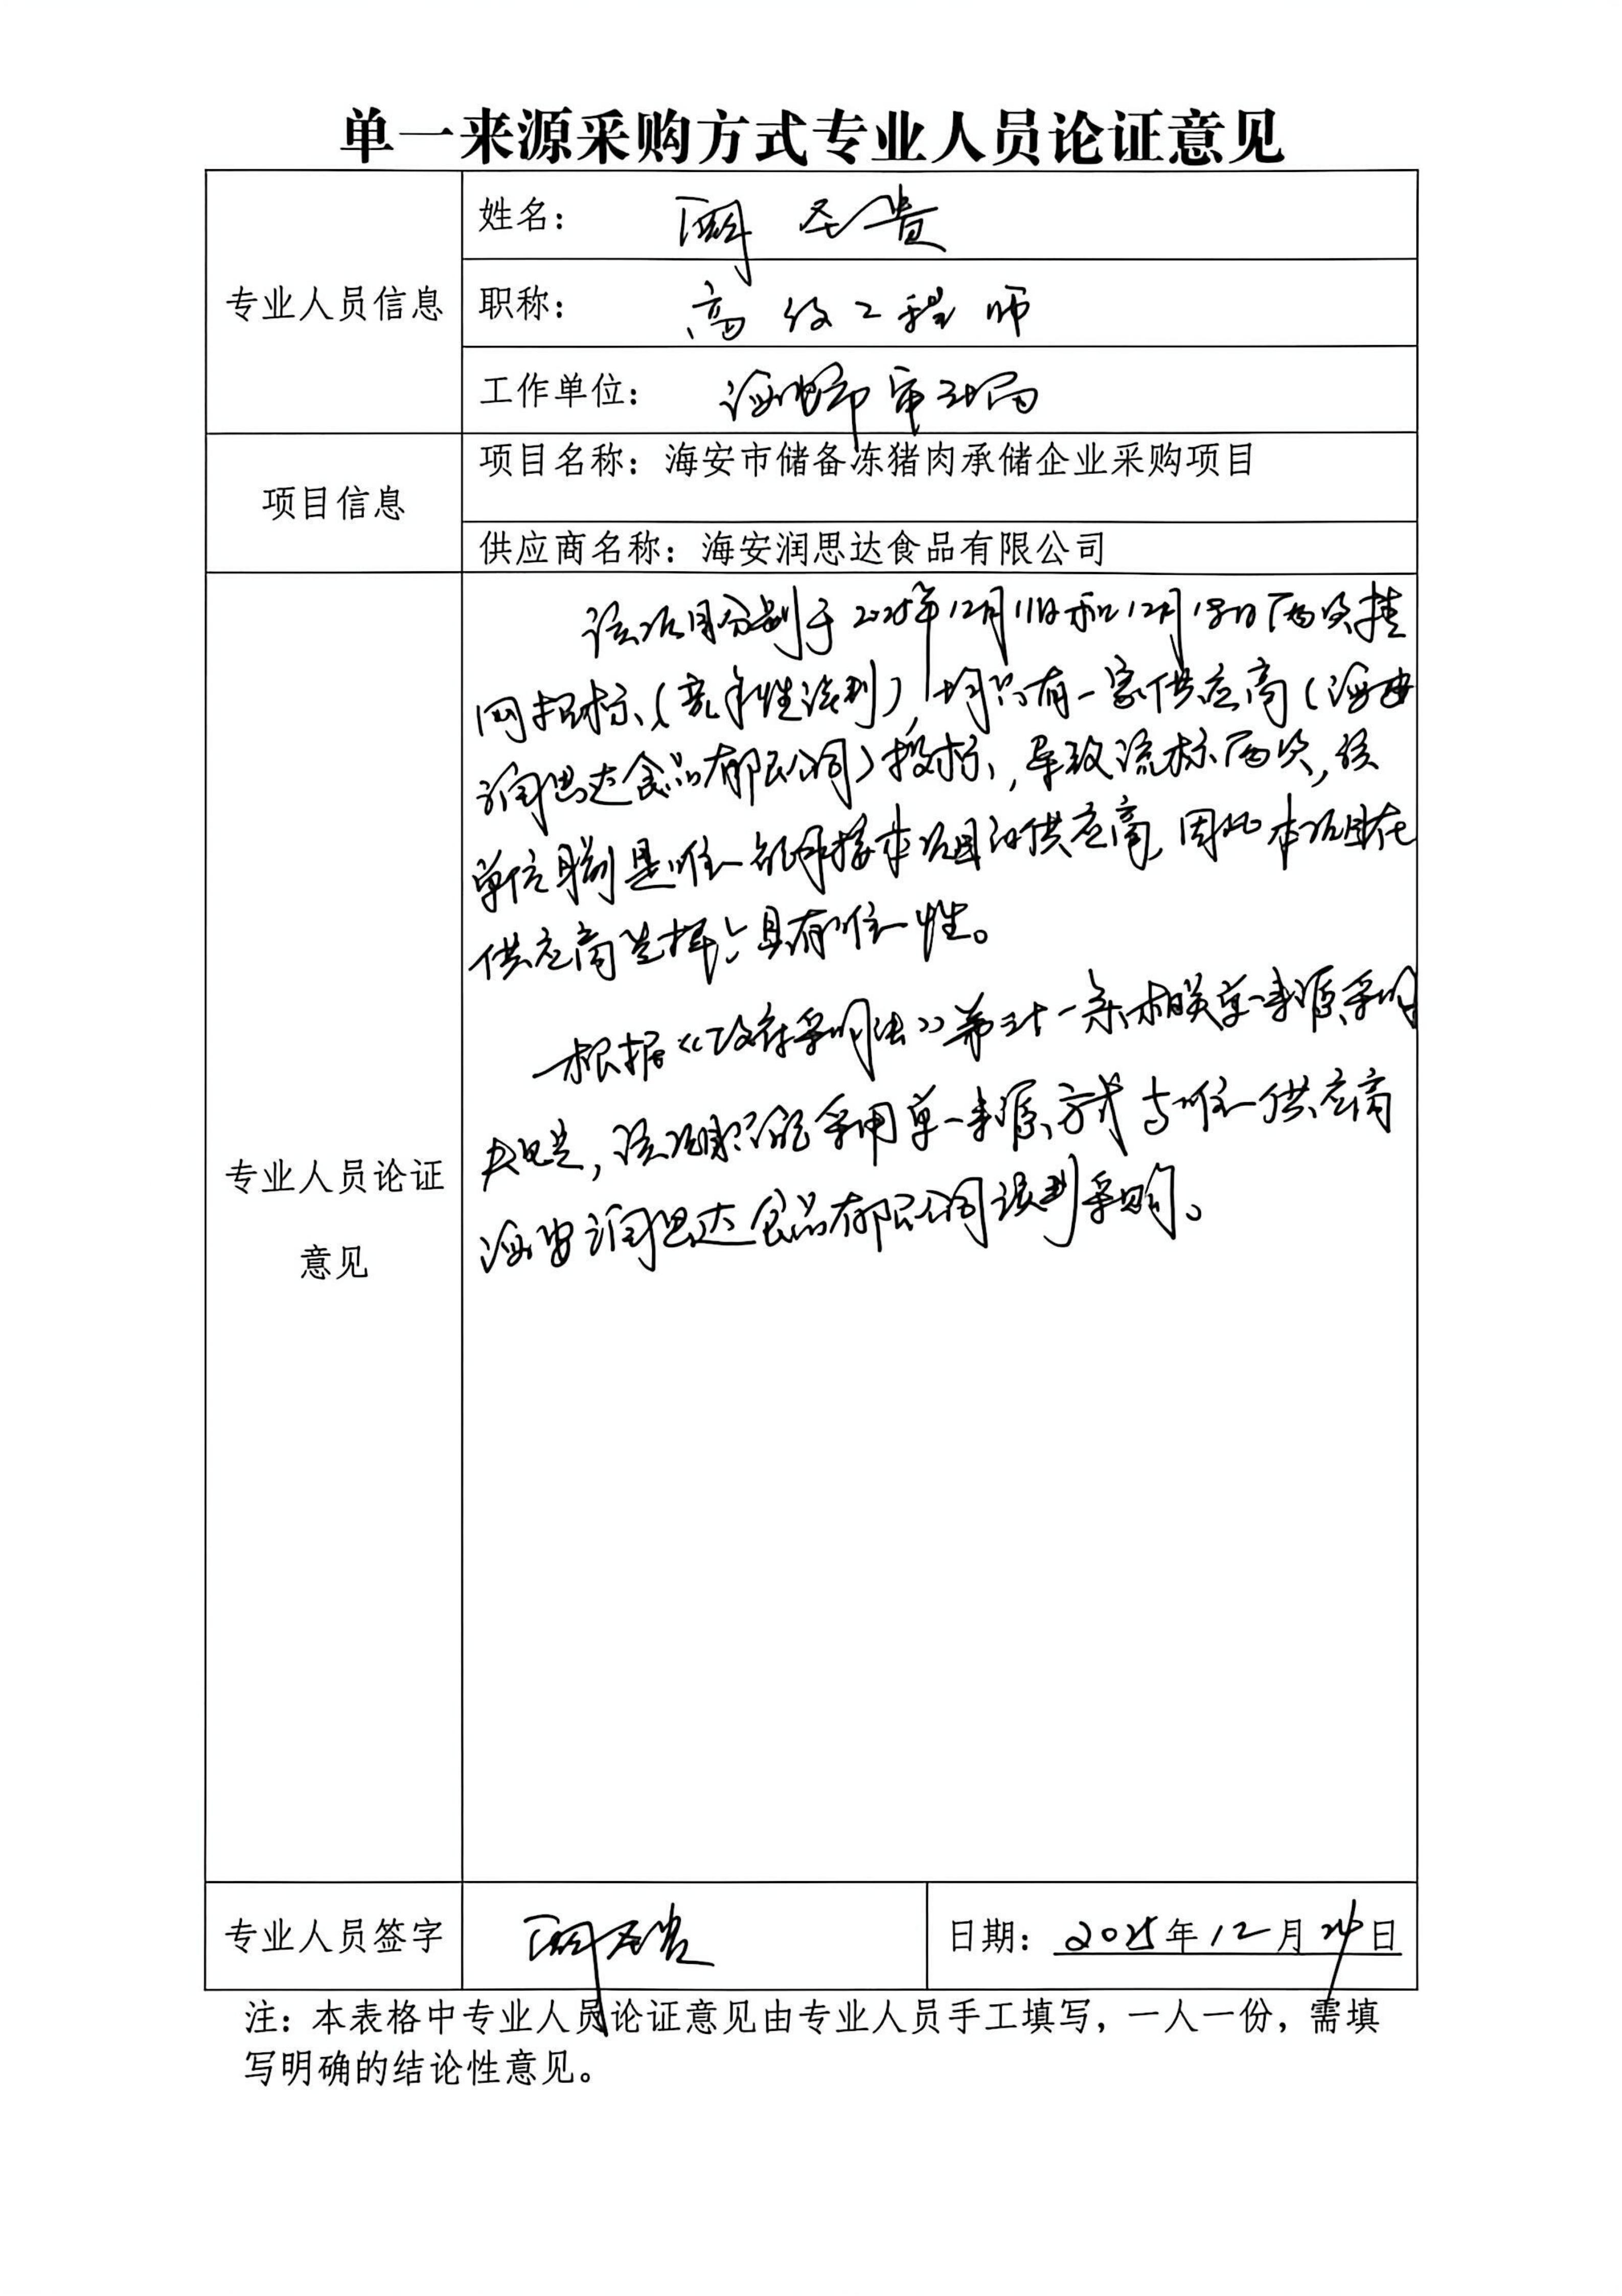 单一来源采购方式专业人员论证意见
专业人员信息
姓名：阚圣贵
职称：高级工程师
工作单位：海安市审计局
项目信息
项目名称：海安市储备冻猪肉承储企业采购项目
供应商名称：海安润思达食品有限公司
专业人员论证意见
该项目分别于2025年12月11日和12月18日两次挂
网招标（竞争性谈判），均只有一家供应商（海安
润思达食品有限公司）投标，导致流标两次，该
单位目前是唯一能承接本项目的供应商，因此本项目在
供应商选择上具有唯一性。
根据《政府采购法》第三十一条相关单一来源采购
规定，该项目只能采用单一来源方式与唯一供应商
海安润思达食品有限公司谈判采购。
专业人员签字
阚圣贵
日期：2025年12月24日
注：本表格中专业人员论证意见由专业人员手工填写，一人一份，需填
写明确的结论性意见。